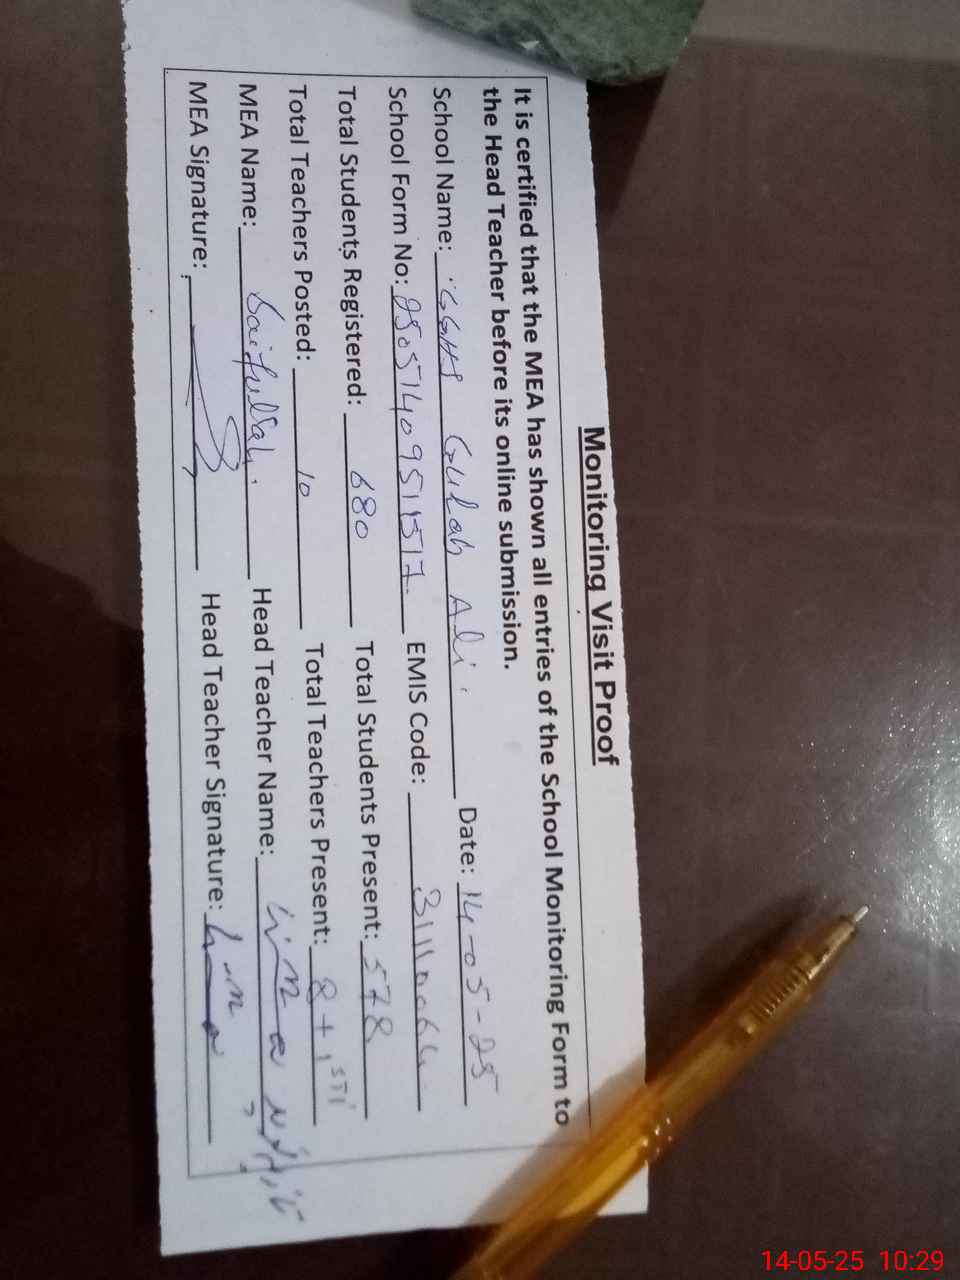 Monitoring Visit Proof
It is certified that the MEA has shown all entries of the School Monitoring Form to
the Head Teacher before its online submission.
School Name: GGHS Gulab Ali. Date: 14-05-25
School Form No: 25051409511517 EMIS Code: 31110064
Total Students Registered: 680 Total Students Present: 578
Total Teachers Posted: 10 Total Teachers Present: 8+1 STI
MEA Name: Saifullah. Head Teacher Name: Hina
MEA Signature: Head Teacher Signature: Hina
14-05-25 10:29